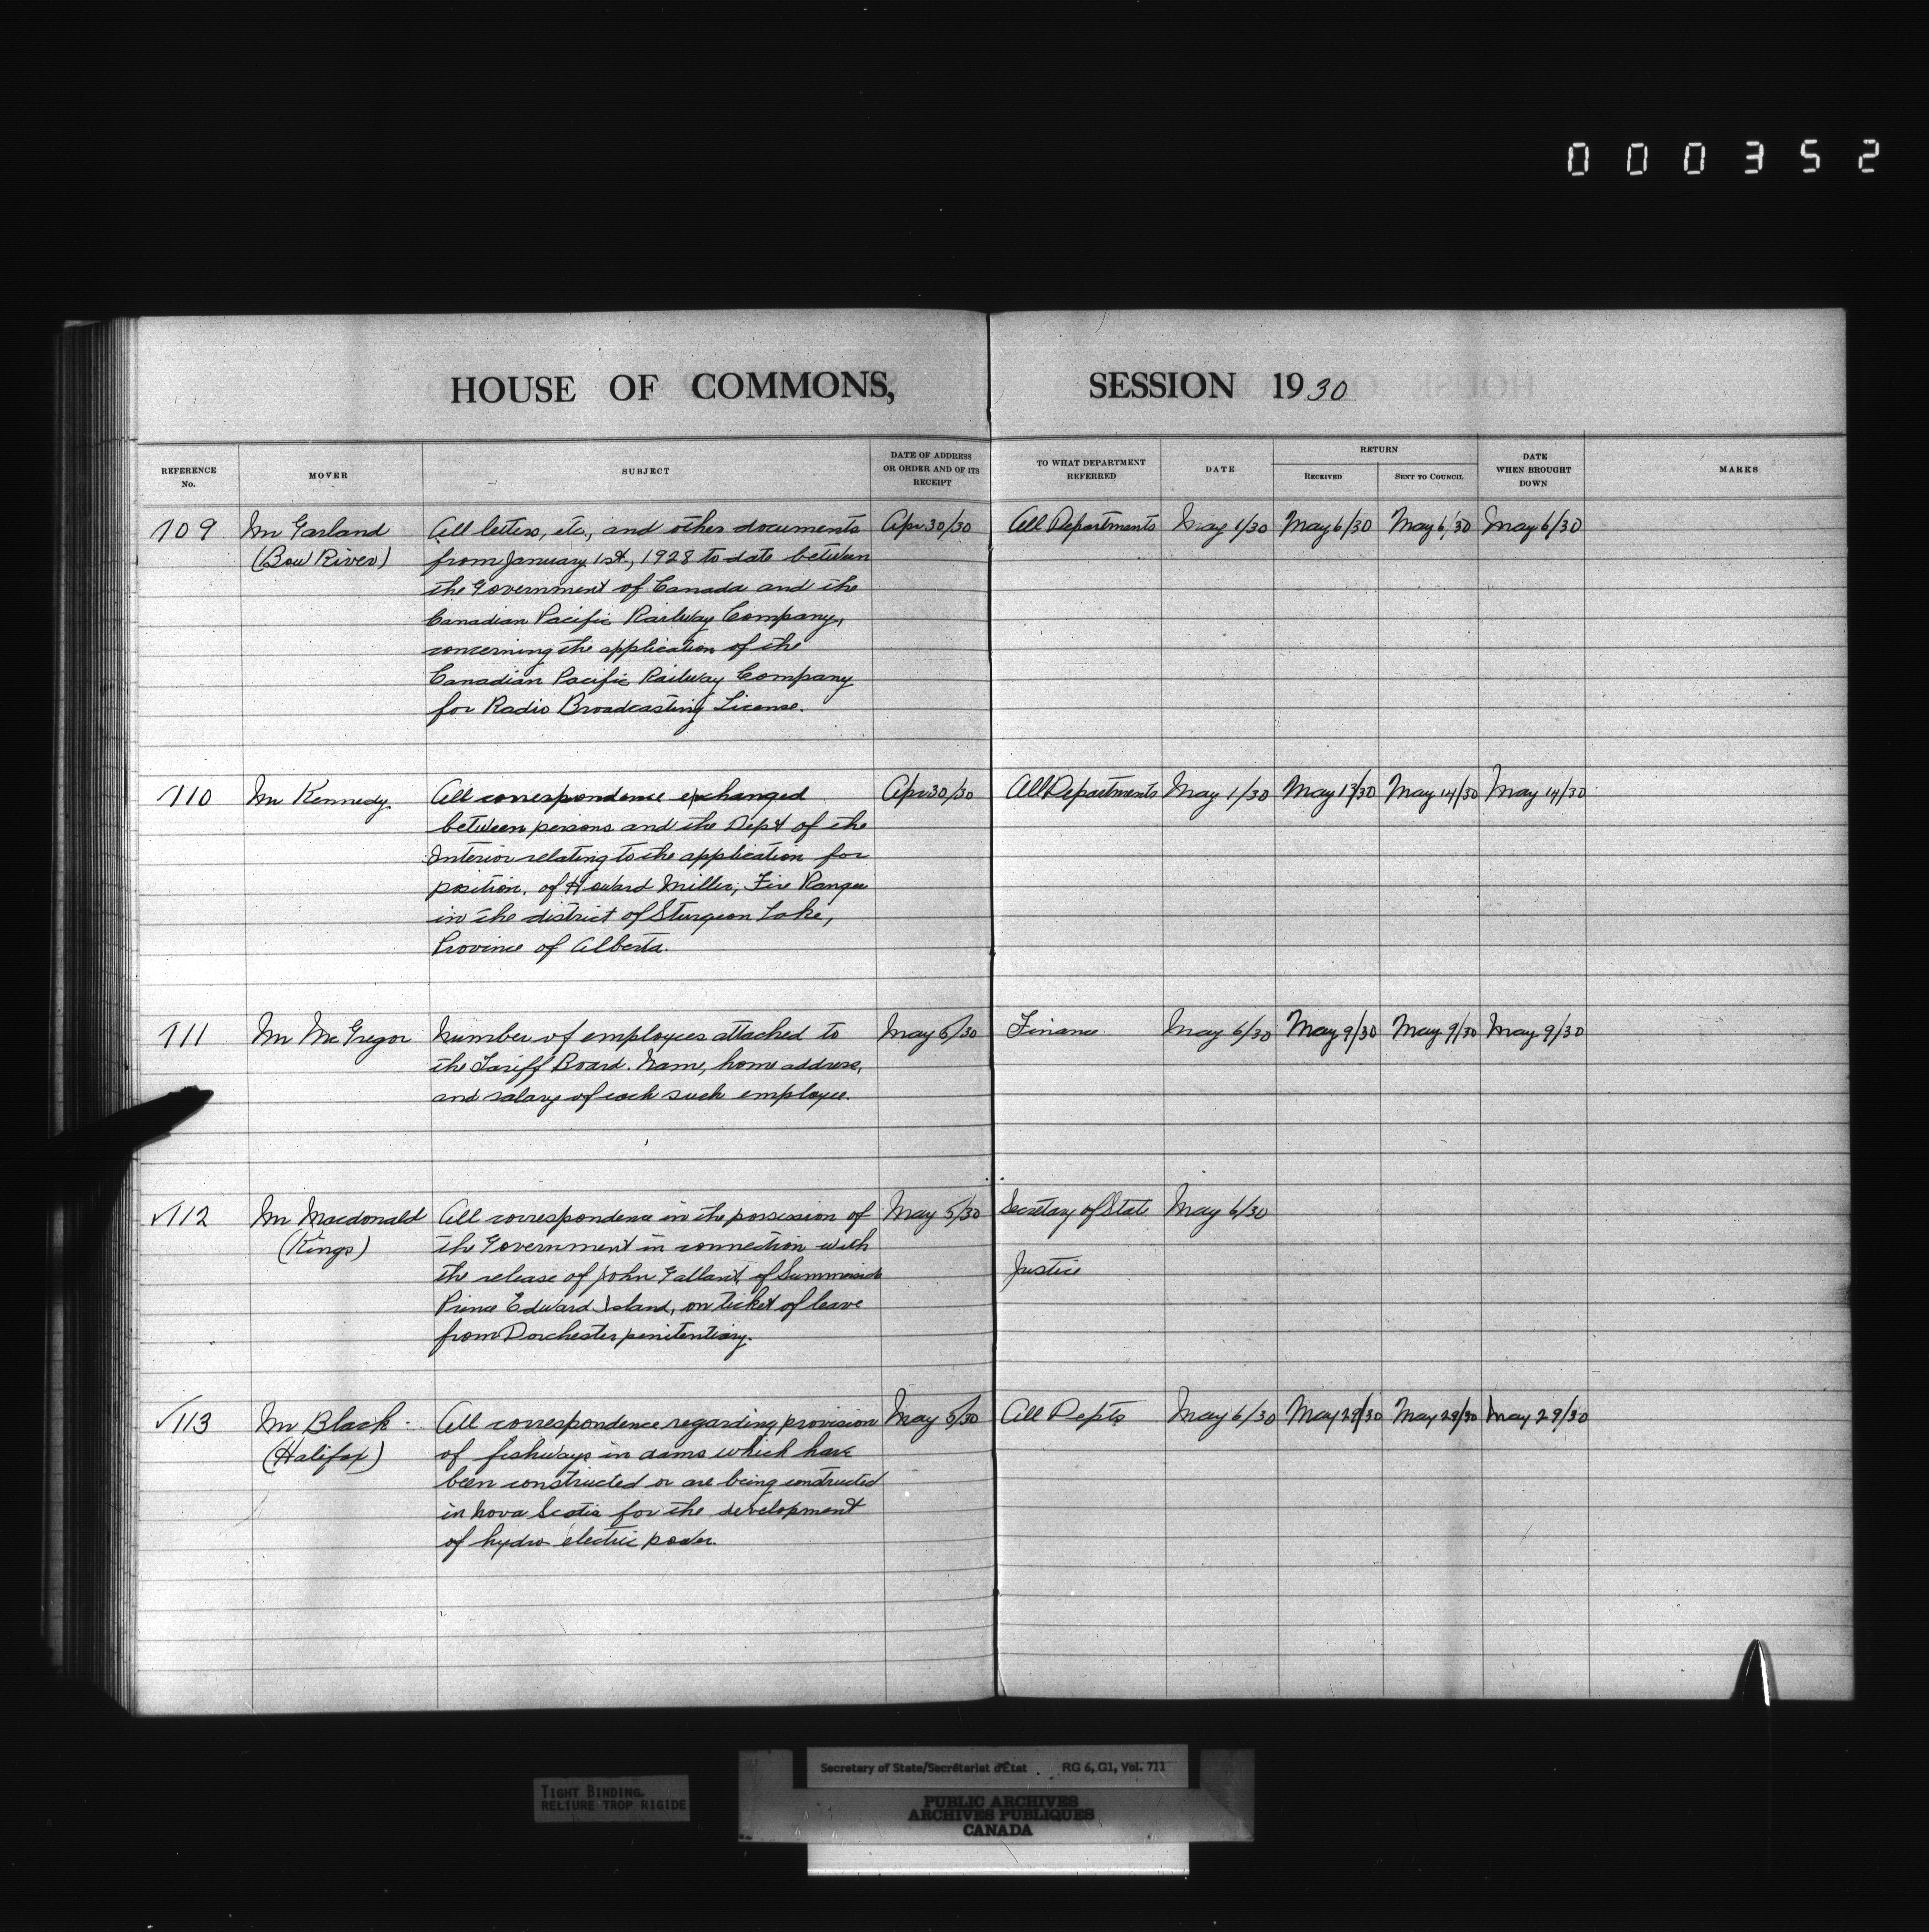 000352
HOUSE OF COMMONS, SESSION 1930
REFERENCE No. MOVER SUBJECT DATE OF ADDRESS OR ORDER AND OF ITS RECEIPT TO WHAT DEPARTMENT REFERRED DATE RETURN RECEIVED SENT TO COUNCIL DATE WHEN BROUGHT DOWN MARKS
109 Mr Garland All letters, etc., and other documents Apr 30/30 All Departments May 1/30 May 6/30 May 6/30 May 6/30
(Bow River) from January 1st, 1928 to date between
the Government of Canada and the
Canadian Pacific Railway Company,
concerning the application of the
Canadian Pacific Railway Company
for Radio Broadcasting License.
110 Mr Kennedy. All correspondence exchanged Apr 30/30 All Departments May 1/30 May 13/30 May 14/30 May 14/30
between persons and the Dept of the
Interior relating to the application for
position, of Howard Miller, Fire Ranger
in the district of Sturgeon Lake,
Province of Alberta.
111 Mr McGregor Number of employees attached to May 5/30 Finance May 6/30 May 9/30 May 9/30 May 9/30
the Tariff Board. Name, home address,
and salary of each such employee.
✓112 Mr Macdonald All correspondence in the possession of May 5/30 Secretary of State May 6/30
(Kings) the Government in connection with
the release of John Gallant, of Summerside Justice
Prince Edward Island, on ticket of leave
from Dorchester penitentiary.
✓113 Mr Black - All correspondence regarding provision May 5/30 All Depts May 6/30 May 29/30 May 29/30 May 29/30
(Halifax) of fishways in dams which have
been constructed or are being constructed
in Nova Scotia for the development
of hydro electric power.
TIGHT BINDING.
RELIURE TROP RIGIDE
Secretary of State/Secrétariat d'État RG 6, G1, Vol. 711
PUBLIC ARCHIVES
ARCHIVES PUBLIQUES
CANADA